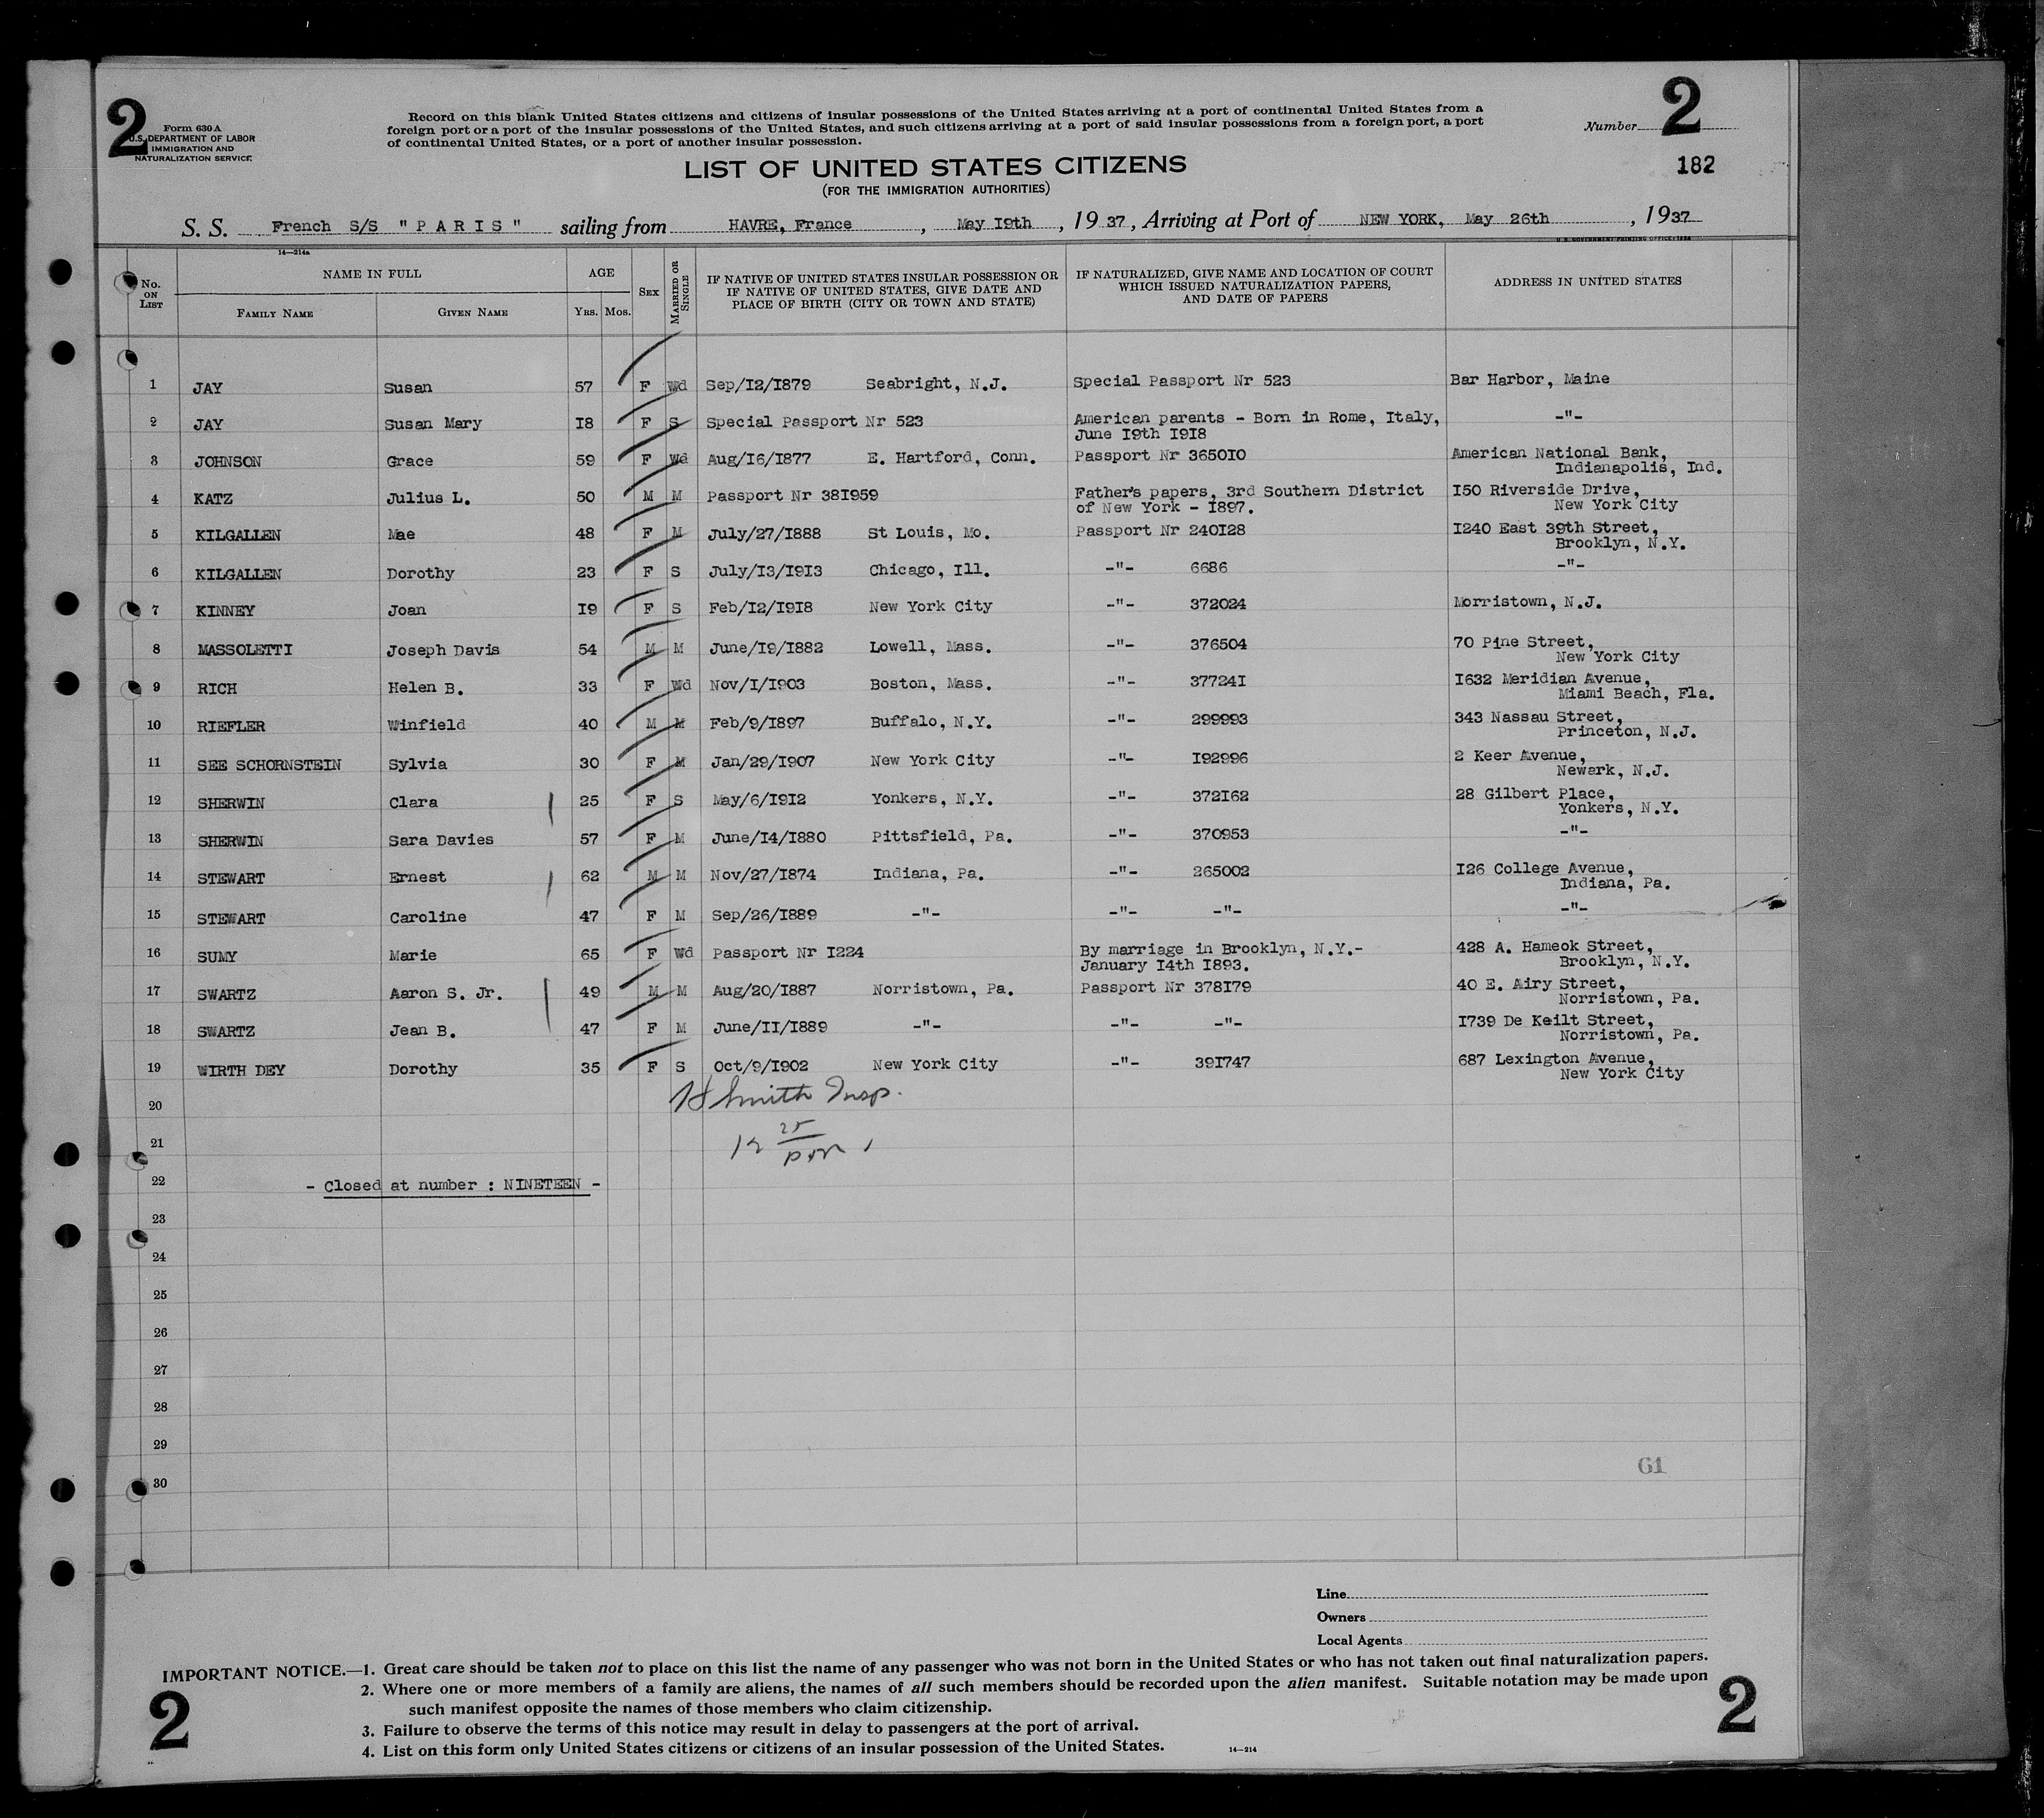 2
Form 630 A
U.S. DEPARTMENT OF LABOR
IMMIGRATION AND
NATURALIZATION SERVICE
Record on this blank United States citizens and citizens of insular possessions of the United States arriving at a port of continental United States from a
foreign port or a port of the insular possessions of the United States, and such citizens arriving at a port of said insular possessions from a foreign port, a port
of continental United States, or a port of another insular possession.
Number 2
182
LIST OF UNITED STATES CITIZENS
(FOR THE IMMIGRATION AUTHORITIES)
S. S. French S/S "PARIS" sailing from HAVRE, France, May I9th, 19 37, Arriving at Port of NEW YORK, May 26th, 1937
U. S. GOVERNMENT PRINTING OFFICE: 1934
14—214a
No. ON LIST
NAME IN FULL
FAMILY NAME GIVEN NAME
AGE
YRS. MOS.
SEX
MARRIED OR SINGLE
IF NATIVE OF UNITED STATES INSULAR POSSESSION OR
IF NATIVE OF UNITED STATES, GIVE DATE AND
PLACE OF BIRTH (CITY OR TOWN AND STATE)
IF NATURALIZED, GIVE NAME AND LOCATION OF COURT
WHICH ISSUED NATURALIZATION PAPERS,
AND DATE OF PAPERS
ADDRESS IN UNITED STATES
1 JAY Susan 57 F Wd Sep/I2/I879 Seabright, N.J. Special Passport Nr 523 Bar Harbor, Maine
2 JAY Susan Mary I8 F S Special Passport Nr 523 American parents - Born in Rome, Italy, -"-
June I9th I9I8
3 JOHNSON Grace 59 F Wd Aug/I6/I877 E. Hartford, Conn. Passport Nr 3650I0 American National Bank,
Indianapolis, Ind.
4 KATZ Julius L. 50 M M Passport Nr 38I959 Father's papers, 3rd Southern District I50 Riverside Drive,
of New York - I897. New York City
5 KILGALLEN Mae 48 F M July/27/I888 St Louis, Mo. Passport Nr 240I28 I240 East 39th Street,
Brooklyn, N.Y.
6 KILGALLEN Dorothy 23 F S July/I3/I9I3 Chicago, Ill. -"- 6686 -"-
7 KINNEY Joan I9 F S Feb/I2/I9I8 New York City -"- 372024 Morristown, N.J.
8 MASSOLETTI Joseph Davis 54 M M June/I9/I882 Lowell, Mass. -"- 376504 70 Pine Street,
New York City
9 RICH Helen B. 33 F Wd Nov/I/I903 Boston, Mass. -"- 37724I I632 Meridian Avenue,
Miami Beach, Fla.
10 RIEFLER Winfield 40 M M Feb/9/I897 Buffalo, N.Y. -"- 299993 343 Nassau Street,
Princeton, N.J.
11 SEE SCHORNSTEIN Sylvia 30 F M Jan/29/I907 New York City -"- I92996 2 Keer Avenue,
Newark, N.J.
12 SHERWIN Clara 25 F S May/6/I9I2 Yonkers, N.Y. -"- 372I62 28 Gilbert Place,
Yonkers, N.Y.
13 SHERWIN Sara Davies 57 F M June/I4/I880 Pittsfield, Pa. -"- 370953 -"-
14 STEWART Ernest 62 M M Nov/27/I874 Indiana, Pa. -"- 265002 I26 College Avenue,
Indiana, Pa.
15 STEWART Caroline 47 F M Sep/26/I889 -"- -"- -"- -"-
16 SUMY Marie 65 F Wd Passport Nr I224 By marriage in Brooklyn, N.Y.- 428 A. Hameok Street,
January I4th I893. Brooklyn, N.Y.
17 SWARTZ Aaron S. Jr. 49 M M Aug/20/I887 Norristown, Pa. Passport Nr 378I79 40 E. Airy Street,
Norristown, Pa.
18 SWARTZ Jean B. 47 F M June/II/I889 -"- -"- -"- I739 De Keilt Street,
Norristown, Pa.
19 WIRTH DEY Dorothy 35 F S Oct/9/I902 New York City -"- 39I747 687 Lexington Avenue,
New York City
20 Smith Insp.
21 12 25 pm
22 - Closed at number : NINETEEN -
23
24
25
26
27
28
29
61
30
Line
Owners
Local Agents
IMPORTANT NOTICE.—1. Great care should be taken not to place on this list the name of any passenger who was not born in the United States or who has not taken out final naturalization papers.
2. Where one or more members of a family are aliens, the names of all such members should be recorded upon the alien manifest. Suitable notation may be made upon
such manifest opposite the names of those members who claim citizenship.
3. Failure to observe the terms of this notice may result in delay to passengers at the port of arrival.
4. List on this form only United States citizens or citizens of an insular possession of the United States. 14—214
2
2